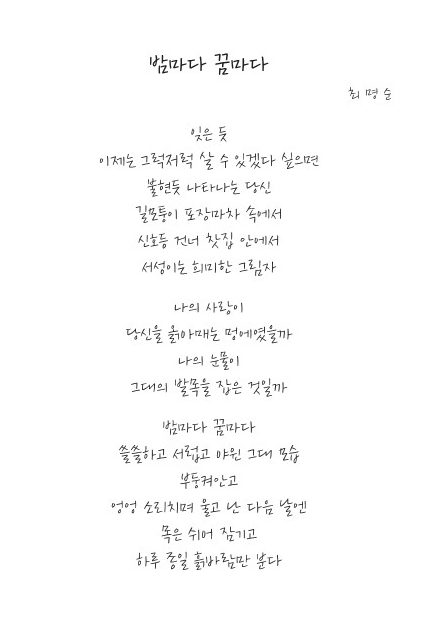 밤마다 꿈마다
최명순
잊은 듯
이제는 그럭저럭 살 수 있겠다 싶으면
불현듯 나타나는 당신
길모퉁이 포장마차 속에서
신호등 건너 찻집 안에서
서성이는 희미한 그림자
나의 사랑이
당신을 옭아매는 멍에였을까
나의 눈물이
그대의 발목을 잡은 것일까
밤마다 꿈마다
쓸쓸하고 서럽고 야윈 그대 모습
부둥켜안고
엉엉 소리치며 울고 난 다음 날엔
목은 쉬어 잠기고
하루 종일 흙바람만 분다